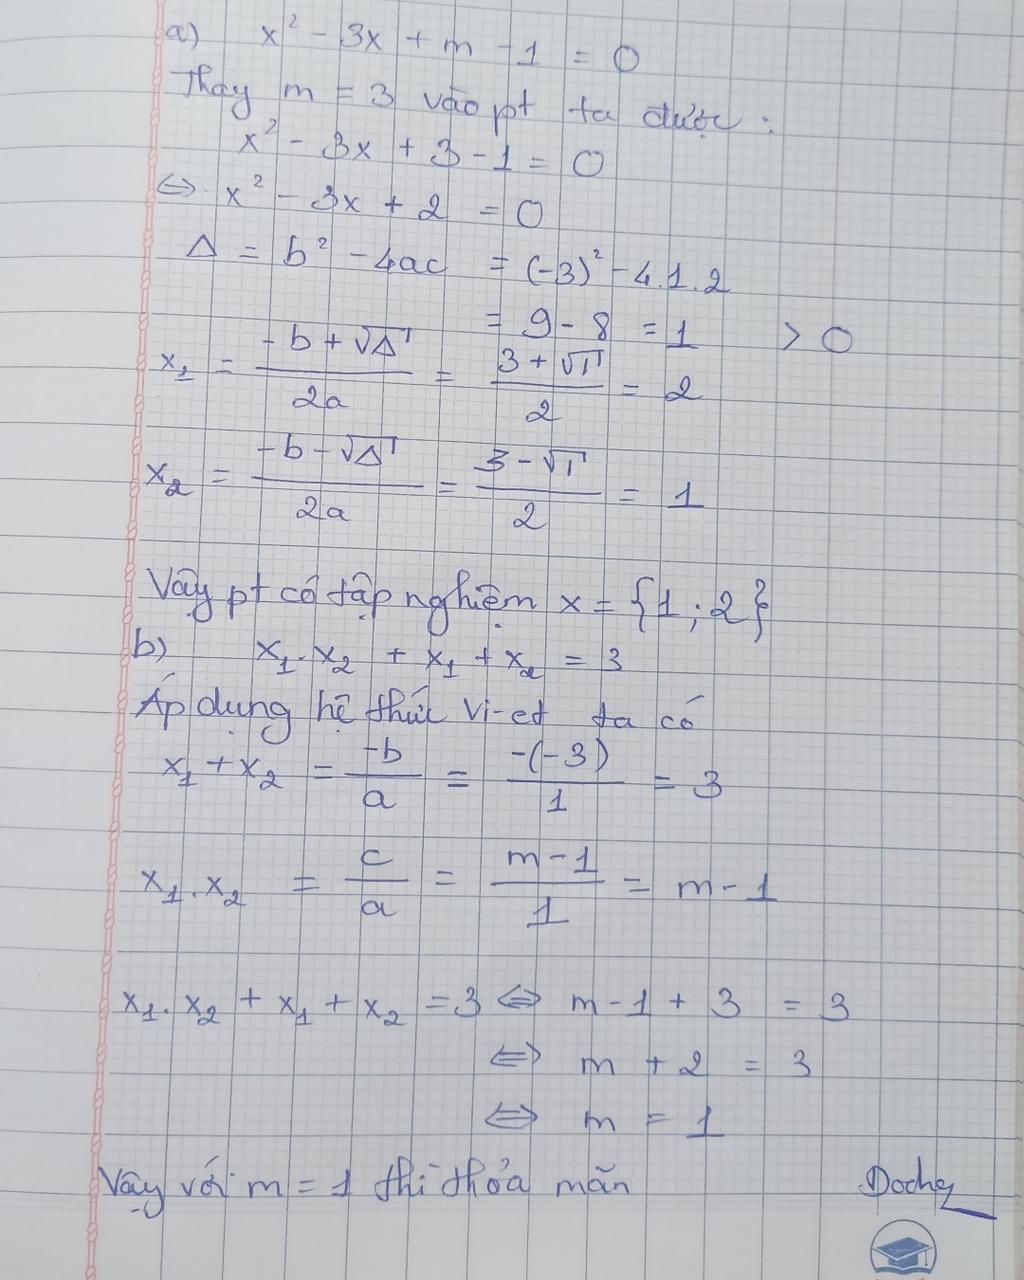 a) x² - 3x + m - 1 = 0
Thay m = 3 vào pt ta được :
x² - 3x + 3 - 1 = 0
⇔ x² - 3x + 2 = 0
Δ = b² - 4ac = (-3)² - 4.1.2
= 9 - 8 = 1 > 0
x₁ = (-b + √Δ)/(2a) = (3 + √1)/2 = 2
x₂ = (-b - √Δ)/(2a) = (3 - √1)/2 = 1
Vậy pt có tập nghiệm x = {1 ; 2}
b) x₁.x₂ + x₁ + x₂ = 3
Áp dụng hệ thức Vi-et ta có
x₁ + x₂ = -b/a = -(-3)/1 = 3
x₁.x₂ = c/a = (m - 1)/1 = m - 1
x₁.x₂ + x₁ + x₂ = 3 ⇔ m - 1 + 3 = 3
⇔ m + 2 = 3
⇔ m = 1
Vậy với m = 1 thì thỏa mãn